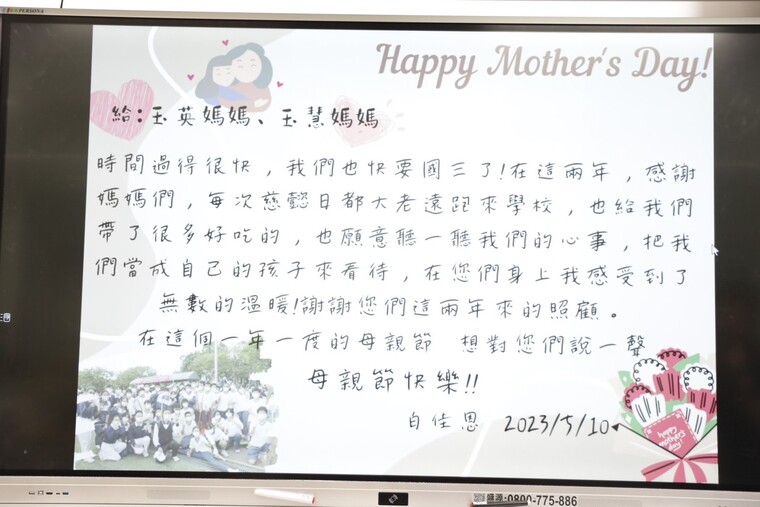 PERSONA
Happy Mother's Day!
給:玉英媽媽、玉慧媽媽
時間過得很快，我們也快要國三了!在這兩年，感謝
媽媽們，每次慈懿日都大老遠跑來學校，也給我們
帶了很多好吃的，也願意聽一聽我們的心事，把我
們當成自己的孩子來看待，在您們身上我感受到了
無數的溫暖!謝謝您們這兩年來的照顧。
在這個一年一度的母親節 想對您們說一聲
母親節快樂!!
白佳恩 2023/5/10
happy mother's day!
0800-775-886